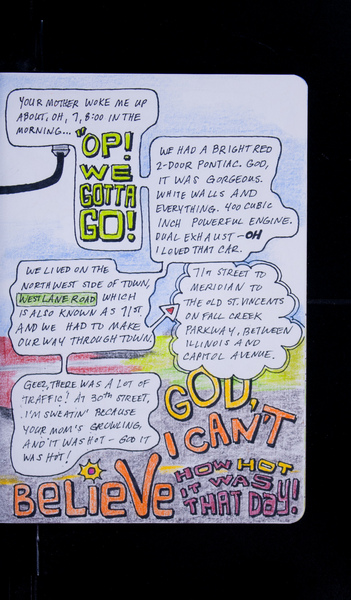 YOUR MOTHER WOKE ME UP
ABOUT, OH, 7, 8:00 IN THE
MORNING...
"OP!
WE
GOTTA
GO!
WE HAD A BRIGHT RED
2-DOOR PONTIAC. GOD,
IT WAS GORGEOUS.
WHITE WALLS AND
EVERYTHING. 400 CUBIC
INCH POWERFUL ENGINE.
DUAL EXHAUST - OH
I LOVED THAT CAR.
WE LIVED ON THE
NORTHWEST SIDE OF TOWN,
WESTLANE ROAD WHICH
IS ALSO KNOWN AS 71ST.
AND WE HAD TO MAKE
OUR WAY THROUGH TOWN.
71ST STREET TO
MERIDIAN TO
THE OLD ST. VINCENTS
ON FALL CREEK
PARKWAY, BETWEEN
ILLINOIS AND
CAPITOL AVENUE.
GEEZ, THERE WAS A LOT OF
TRAFFIC! AT 30TH STREET,
I'M SWEATIN' BECAUSE
YOUR MOM'S GROWLING,
AND IT WAS HOT - GOD IT
WAS HOT!
GOD,
I CAN'T
BELIEVE
HOW HOT
IT WAS
THAT DAY!